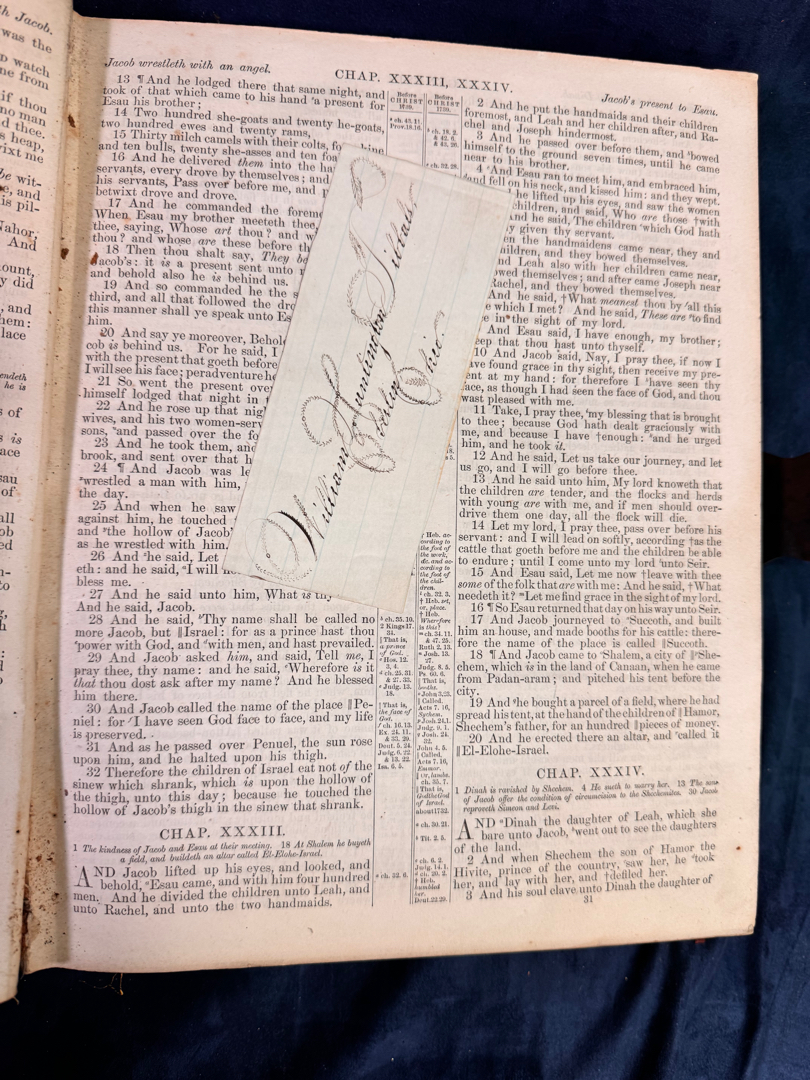 h Jacob.
was the
watch
me from
if thou
no man
d thee.
s heap,
rixt me
be wit-
e, and
is pil-
Nahor,
And
ount,
y did
, and
hem:
lace
endeth
he is
s of
s is
ace
sau
of
all
ob
ed
Jacob wrestleth with an angel.
CHAP. XXXIII, XXXIV.
Jacob's present to Esau.
13 ¶ And he lodged there that same night, and
took of that which came to his hand ᵃa present for
Esau his brother;
14 Two hundred she-goats and twenty he-goats,
two hundred ewes and twenty rams,
15 Thirty milch camels with their colts,
and ten bulls, twenty she-asses and ten
16 And he delivered them into the
servants, every drove by themselves; and
his servants, Pass over before me, and
betwixt drove and drove.
17 And he commanded the
When Esau my brother meeteth thee,
thee, saying, Whose art thou? and
thou? and whose are these before
18 Then thou shalt say, They
Jacob's: it is a present sent unto
and behold also he is behind us.
19 And so commanded he the s
third, and all that followed the
this manner shall ye speak unto Es
him.
20 And say ye moreover, Behol
cob is behind us. For he said, I
with the present that goeth before
I will see his face; peradventure he
21 So went the present ove
himself lodged that night in
22 And he rose up that nig
wives, and his two women-ser
sons, and passed over the fo
23 And he took them, and
brook, and sent over that h
24 ¶ And Jacob was le
wrestled a man with him,
the day.
25 And when he saw
against him, he touched
and the hollow of Jacob'
as he wrestled with him.
26 And he said, Let
eth: and he said, I will
bless me.
27 And he said unto him, What is thy
And he said, Jacob.
28 And he said, Thy name shall be called no
more Jacob, but ‖Israel: for as a prince hast thou
power with God, and with men, and hast prevailed.
29 And Jacob asked him, and said, Tell me, I
pray thee, thy name: and he said, Wherefore is it
that thou dost ask after my name? And he blessed
him there.
30 And Jacob called the name of the place ‖Pe-
niel: for I have seen God face to face, and my life
is preserved.
31 And as he passed over Penuel, the sun rose
upon him, and he halted upon his thigh.
32 Therefore the children of Israel eat not of the
sinew which shrank, which is upon the hollow of
the thigh, unto this day; because he touched the
hollow of Jacob's thigh in the sinew that shrank.
CHAP. XXXIII.
1 The kindness of Jacob and Esau at their meeting. 18 At Shalem he buyeth
a field, and buildeth an altar called El-Elohe-Israel.
AND Jacob lifted up his eyes, and looked, and
behold, Esau came, and with him four hundred
men. And he divided the children unto Leah, and
unto Rachel, and unto the two handmaids.
Before
CHRIST
1739.
ch. 43. 11.
Prov. 18. 16.
ch. 35. 10.
2 Kings 17.
34.
‖ That is,
a prince
of God.
Hos. 12.
3, 4.
ch. 25. 31.
& 27. 33.
Judg. 13.
18.
‖ That is,
the face of
God.
ch. 16. 13.
Ex. 24. 11.
& 33. 20.
Deut. 5. 24.
Judg. 6. 22.
& 13. 22.
Isa. 6. 5.
ch. 32. 6.
Before
CHRIST
1739.
ch. 18. 2.
& 42. 6.
& 43. 26.
ch. 32. 28.
† Heb. ac-
cording to
the foot of
the work,
&c. and ac-
cording to
the foot of
the chil-
dren.
ch. 32. 3.
† Heb. set,
or, place.
† Heb.
Wherefore
is this?
ch. 34. 11.
& 47. 25.
Ruth 2. 13.
Josh. 13.
27.
Judg. 8. 5.
Ps. 60. 6.
‖ That is,
booths.
John 3. 23.
‖ Called,
Acts 7. 16,
Sychem.
Josh. 24. 1.
Judg. 9. 1.
Josh. 24.
32.
John 4. 5.
‖ Called,
Acts 7. 16,
Emmor.
‖ Or, lambs.
ch. 35. 7.
‖ That is,
God the God
of Israel.
about 1732.
ch. 30. 21.
Tit. 2. 5.
ch. 6. 2.
Judg. 14. 1.
ch. 20. 2.
† Heb.
humbled
her.
Deut. 22. 29.
2 And he put the handmaids and their children
foremost, and Leah and her children after, and Ra-
chel and Joseph hindermost.
3 And he passed over before them, and bowed
himself to the ground seven times, until he came
near to his brother.
4 And Esau ran to meet him, and embraced him,
and fell on his neck, and kissed him: and they wept.
he lifted up his eyes, and saw the women
children, and said, Who are those †with
And he said, The children which God hath
y given thy servant.
en the handmaidens came near, they and
ildren, and they bowed themselves.
d Leah also with her children came near,
owed themselves; and after came Joseph near
Rachel, and they bowed themselves.
And he said, †What meanest thou by all this
which I met? And he said, These are to find
e in the sight of my lord.
And Esau said, I have enough, my brother;
eep that thou hast unto thyself.
10 And Jacob said, Nay, I pray thee, if now I
ave found grace in thy sight, then receive my pre-
ent at my hand: for therefore I have seen thy
face, as though I had seen the face of God, and thou
wast pleased with me.
11 Take, I pray thee, my blessing that is brought
to thee; because God hath dealt graciously with
me, and because I have †enough: and he urged
him, and he took it.
12 And he said, Let us take our journey, and let
us go, and I will go before thee.
13 And he said unto him, My lord knoweth that
the children are tender, and the flocks and herds
with young are with me, and if men should over-
drive them one day, all the flock will die.
14 Let my lord, I pray thee, pass over before his
servant: and I will lead on softly, according †as the
cattle that goeth before me and the children be able
to endure; until I come unto my lord unto Seir.
15 And Esau said, Let me now †leave with thee
some of the folk that are with me: And he said, †What
needeth it? Let me find grace in the sight of my lord.
16 ¶ So Esau returned that day on his way unto Seir.
17 And Jacob journeyed to Succoth, and built
him an house, and made booths for his cattle: there-
fore the name of the place is called ‖Succoth.
18 ¶ And Jacob came to Shalem, a city of ‖She-
chem, which is in the land of Canaan, when he came
from Padan-aram; and pitched his tent before the
city.
19 And he bought a parcel of a field, where he had
spread his tent, at the hand of the children of ‖Hamor,
Shechem's father, for an hundred ‖pieces of money.
20 And he erected there an altar, and called it
‖El-Elohe-Israel.
CHAP. XXXIV.
1 Dinah is ravished by Shechem. 4 He sueth to marry her. 13 The sons
of Jacob offer the condition of circumcision to the Shechemites. 30 Jacob
reproveth Simeon and Levi.
AND Dinah the daughter of Leah, which she
bare unto Jacob, went out to see the daughters
of the land.
2 And when Shechem the son of Hamor the
Hivite, prince of the country, saw her, he took
her, and lay with her, and †defiled her.
3 And his soul clave unto Dinah the daughter of
31
William Huntington Sibball,
Berlin Ohio